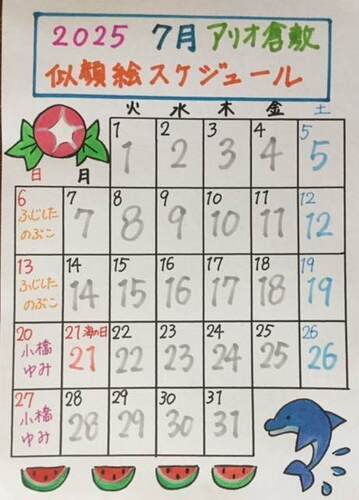 2025 7月 アリオ倉敷
似顔絵スケジュール
火 水 木 金 土
1 2 3 4 5
1 2 3 4 5
日 月
6 7 8 9 10 11 12
ふじした 7 8 9 10 11 12
のぶこ
13 14 15 16 17 18 19
ふじした 14 15 16 17 18 19
のぶこ
20 21 海の日 22 23 24 25 26
小橋 21 22 23 24 25 26
ゆみ
27 28 29 30 31
小橋 28 29 30 31
ゆみ